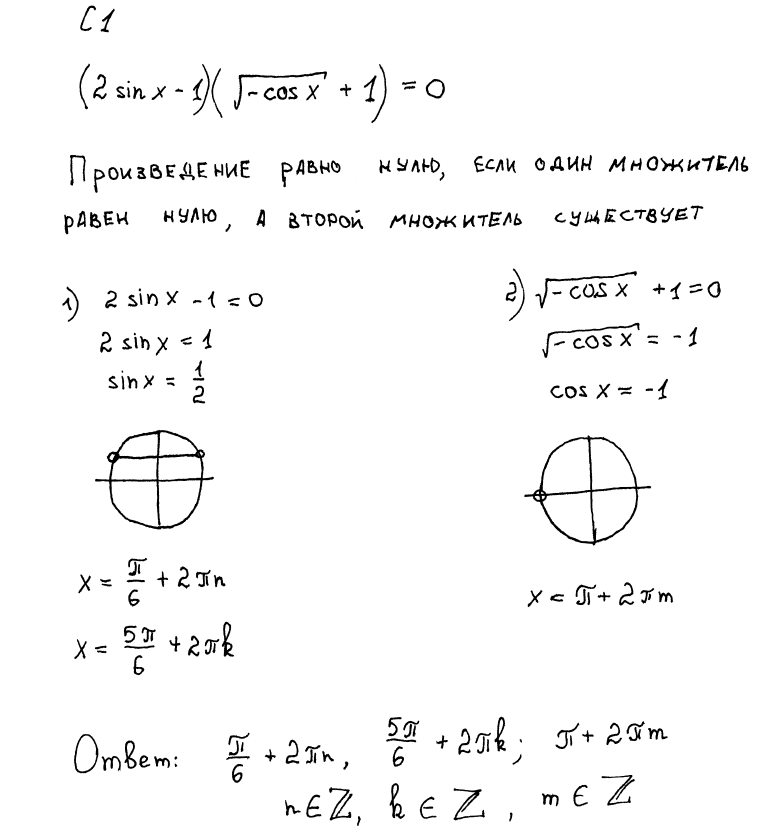 С1
(2 sin x - 1)(√-cos x + 1) = 0
Произведение равно нулю, если один множитель
равен нулю, а второй множитель существует
1) 2 sin x - 1 = 0
2 sin x = 1
sin x = 1/2
x = π/6 + 2πn
x = 5π/6 + 2πk
2) √-cos x + 1 = 0
√-cos x = -1
cos x = -1
x = π + 2πm
Ответ: π/6 + 2πn, 5π/6 + 2πk; π + 2πm
n ∈ ℤ, k ∈ ℤ, m ∈ ℤ